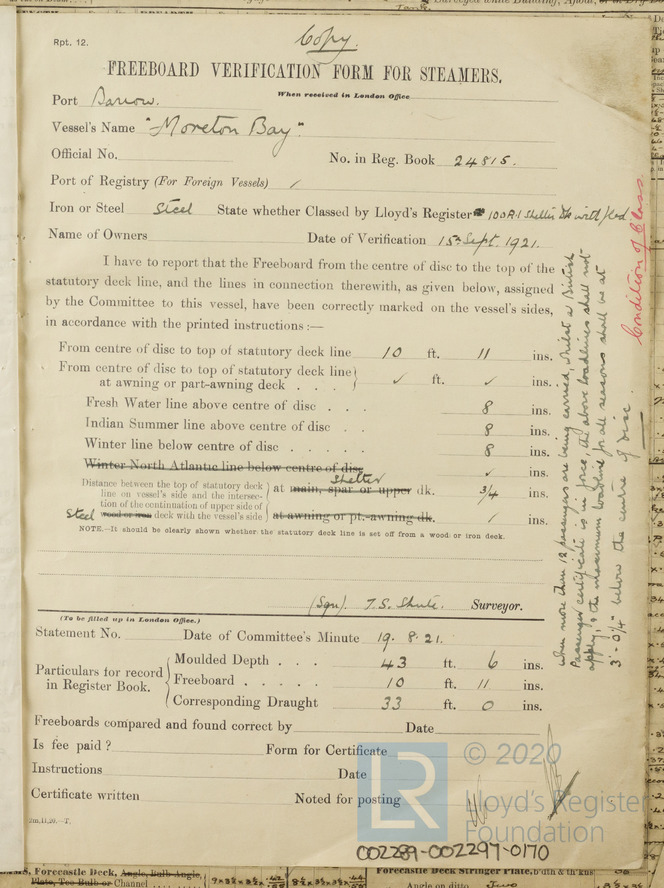 Copy.
Rpt. 12.
FREEBOARD VERIFICATION FORM FOR STEAMERS.
When received in London Office
Port Barrow.
Vessel's Name "Moreton Bay".
Official No. No. in Reg. Book 24815.
Port of Registry (For Foreign Vessels) /
Iron or Steel Steel State whether Classed by Lloyd's Register 100A.1 Shelter Dk with fbd
Condition of Class
Name of Owners Date of Verification 15th Sept. 1921.
I have to report that the Freeboard from the centre of disc to the top of the
statutory deck line, and the lines in connection therewith, as given below, assigned
by the Committee to this vessel, have been correctly marked on the vessel's sides,
in accordance with the printed instructions :—
From centre of disc to top of statutory deck line 10 ft. 11 ins.
From centre of disc to top of statutory deck line
at awning or part-awning deck . . . ✓ ft. ✓ ins.
Fresh Water line above centre of disc . . . 8 ins.
Indian Summer line above centre of disc . . 8 ins.
Winter line below centre of disc . . . . . 8 ins.
Winter North Atlantic line below centre of disc ✓ ins.
Shelter
Distance between the top of statutory deck
line on vessel's side and the intersec- at main, spar or upper dk. 3/4 ins.
tion of the continuation of upper side of
Steel wood or iron deck with the vessel's side at awning or pt.-awning dk. / ins.
NOTE.—It should be clearly shown whether the statutory deck line is set off from a wood or iron deck.
When more than 12 passengers are being carried, whilst a British
Passenger certificate is in force, the above loadlines shall not
apply, & the maximum loadline for all seasons shall be at
3'-0¼" below the centre of disc.
(Sgn). T.S. Shute. Surveyor.
(To be filled up in London Office.)
Statement No. Date of Committee's Minute 19. 8. 21.
Particulars for record
in Register Book.
Moulded Depth . . . 43 ft. 6 ins.
Freeboard . . . . . 10 ft. 11 ins.
Corresponding Draught 33 ft. 0 ins.
Freeboards compared and found correct by Date
Is fee paid ? Form for Certificate
Instructions Date
Certificate written Noted for posting
2m,11,20.—T.
LR
© 2020
Lloyd's Register
Foundation
002289-002297-0170
Forecastle Deck, Angle, Bulb Angle,
Plate, Tee Bulb or Channel
Forecastle Deck Stringer Plate, b'dth & th'kns
Angle on ditto